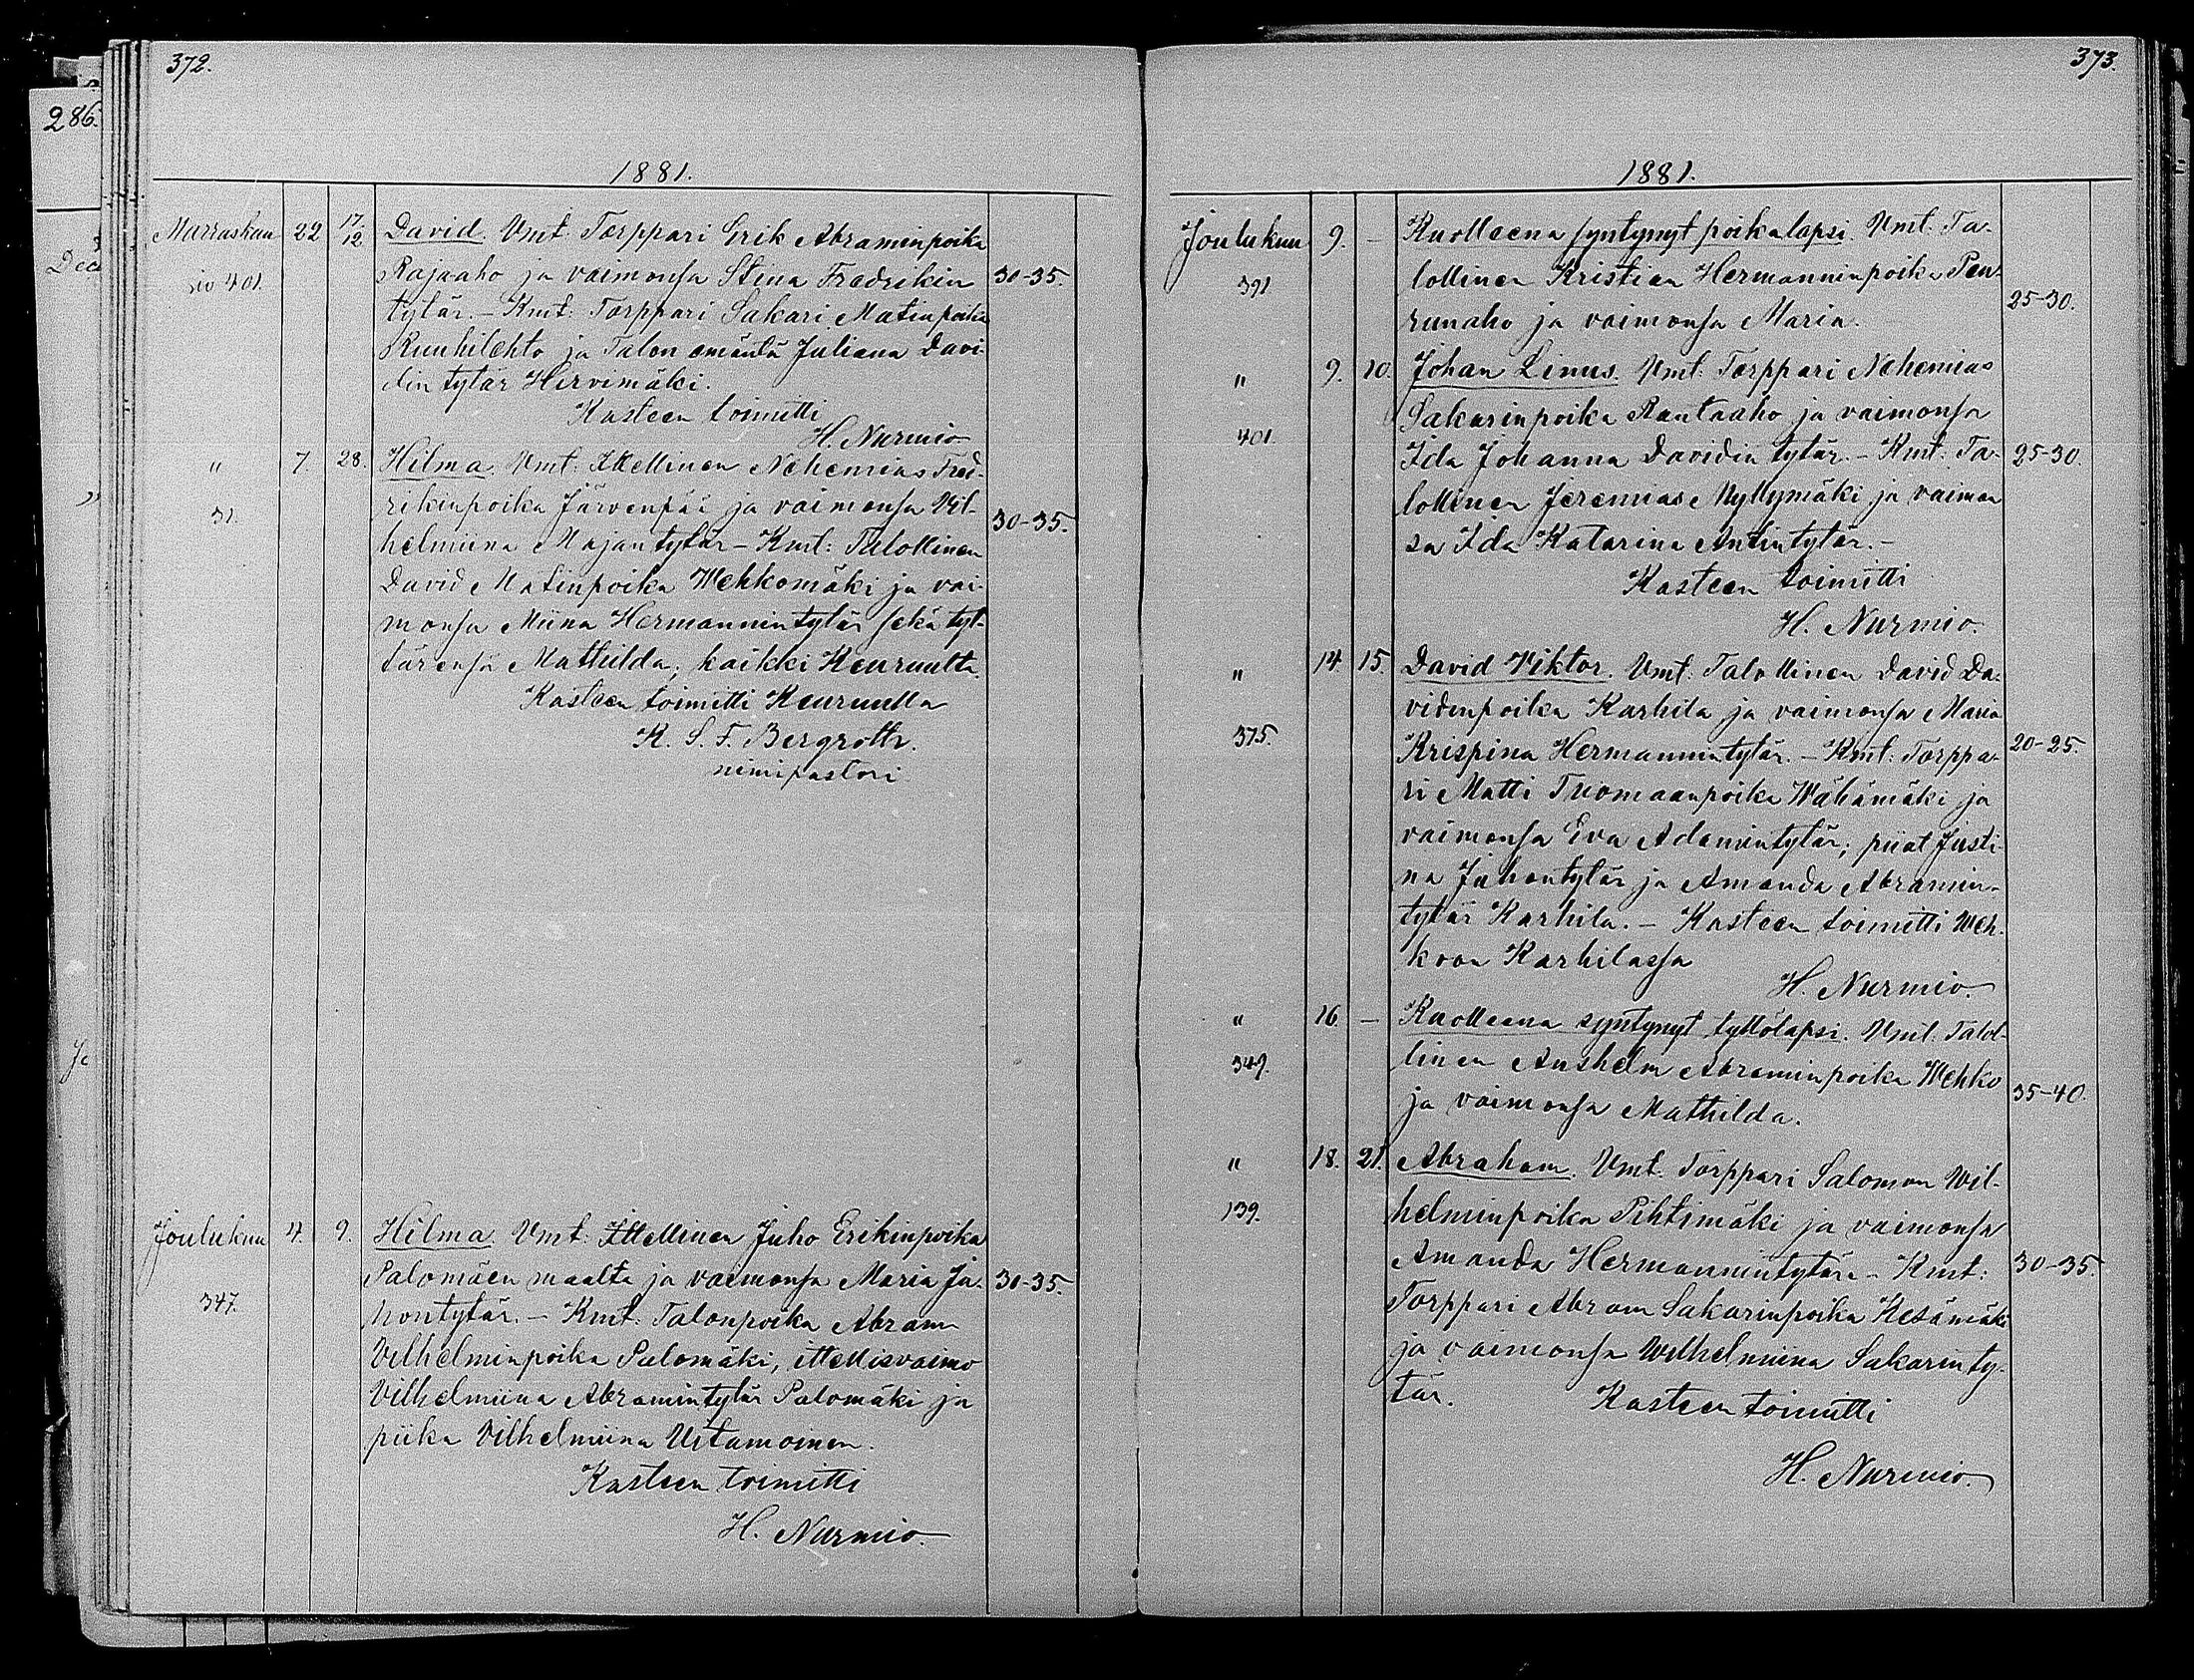 372.
286.
1881.
Marraskuu 22 17/12 David. Vmt. Torppari Erik Abraminpoika
siv 401. Rajaaho ja vaimonsa Stina Fredrikin 30-35.
tytär. - Kmt: Torppari Sakari Matinpoika
Ruuhilehto ja Talon emäntä Juliana Davi-
din tytär Hirvimäki.
Kasteen toimitti
H. Nurmio
" 7 28. Hilma. Vmt: Ittellinen Nehemias Fred-
31. rikinpoika Järvenpää ja vaimonsa Vil- 30-35.
helmiina Majantytär - Kmt: Talollinen
David Matinpoika Wehkomäki ja vai-
monsa Miina Hermannintytär sekä tyt-
tärensä Mathilda; kaikki Keuruulta.
Kasteen toimitti Keuruulla
K. S. F. Bergroth.
nimipastori
Joulukuu 4. 9. Hilma. Vmt: Ittellinen Juho Erikinpoika
Palomäen maalta ja vaimonsa Maria Ju- 30-35.
347. hontytär. - Kmt: Talonpoika Abram
Vilhelminpoika Palomäki, ittellisvaimo
Vilhelmiina Abramintytär Palomäki ja
piika Vilhelmiina Urtamoinen.
Kasteen toimitti
H. Nurmio.
373.
1881.
Joulukuu 9. - Kuolleena syntynyt poikalapsi. Vmt: Ta-
391 lollinen Kristian Hermanninpoika Pen- 25-30.
runaho ja vaimonsa Maria.
" 9. 10. Johan Linus. Vmt: Torppari Nehemias
Sakarinpoika Rautaaho ja vaimonsa
401. Ida Johanna Davidin tytär. - Kmt: Ta- 25-30.
lollinen Jeremias Myllymäki ja vaimon
sa Ida Katarina Antintytär. -
Kasteen toimitti
H. Nurmio.
" 14. 15. David Viktor. Vmt: Talollinen David Da-
vidinpoika Karhila ja vaimonsa Maria
375. Krispina Hermannintytär. - Kmt: Torppa- 20-25.
ri Matti Tuomaanpoika Wähämäki ja
vaimonsa Eva Adamintytär; piiat Justi-
na Juhontytär ja Amanda Abramin-
tytär Karhila. - Kasteen toimitti Weh-
koon Karhilassa
H. Nurmio.
" 16. - Kuolleena syntynyt tyttölapsi. Vmt. Talol-
349. linen Anshelm Abraminpoika Wehko 35-40.
ja vaimonsa Mathilda.
" 18. 21. Abraham. Vmt. Torppari Salomon Wil-
139. helminpoika Pihtimäki ja vaimonsa
Amanda Hermannintytär. - Kmt: 30-35.
Torppari Abram Sakarinpoika Kesämäki
ja vaimonsa Wilhelmiina Sakarinty-
tär. Kasteen toimitti
H. Nurmio.